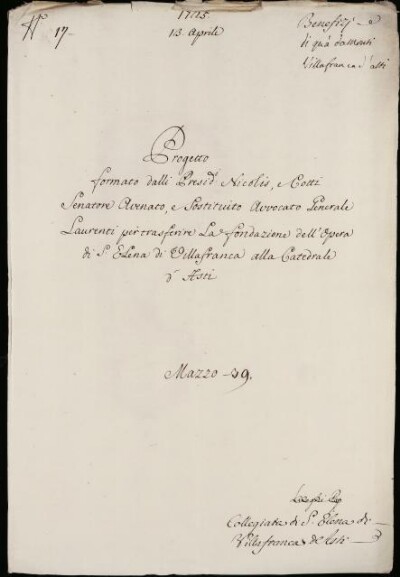 N° 17.
1775
13. Aprile
Benefizj
di quà da monti
Villafranca d'Asti
Progetto
formato dalli Presid.ti Nicolis, e Cotti
Senatore Avenato, e Sostituito Avvocato Generale
Laurenti per trasferire La fondazione dell'Opera
di S. Elena di Villafranca alla Catedrale
d'Asti
Mazzo 39.
Collegiata di S. Elena di
Villafranca d'Asti